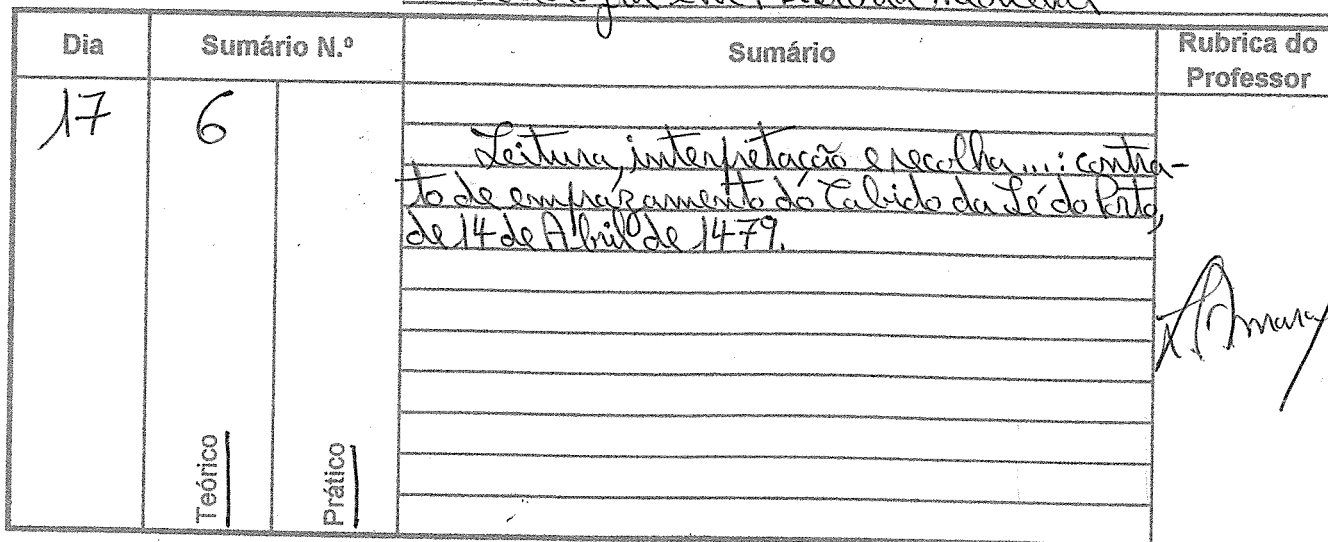 em História Medieval
Dia
Sumário N.º
Sumário
Rubrica do
Professor
17
6
Leitura, interpretação e recolha...: contra-
to de emprazamento do Cabido da Sé do Porto,
de 14 de Abril de 1479.
Teórico
Prático